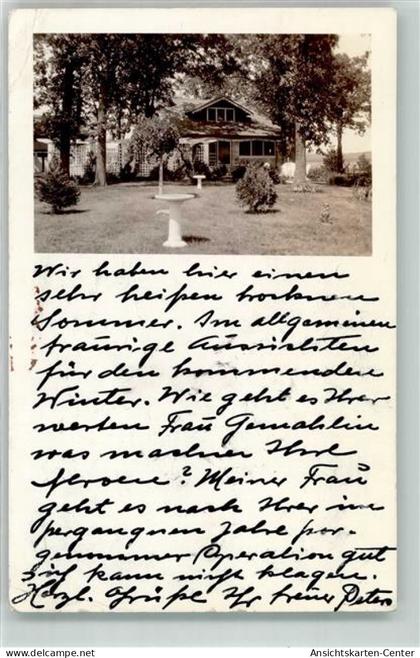 Wir haben hier einen
sehr heißen trockenen
Sommer. Im allgemeinen
traurige Aussichten
für den kommenden
Winter. Wie geht es Ihrer
werten Frau Gemahlin
was machen Ihre
? Meiner Frau
geht es nach Ihrer im
vergangenen Jahre vor-
genommener Operation gut
Ich kann nicht klagen.
Herzl. Grüße Ihr treuer Peter
Ansichtskarten-Center